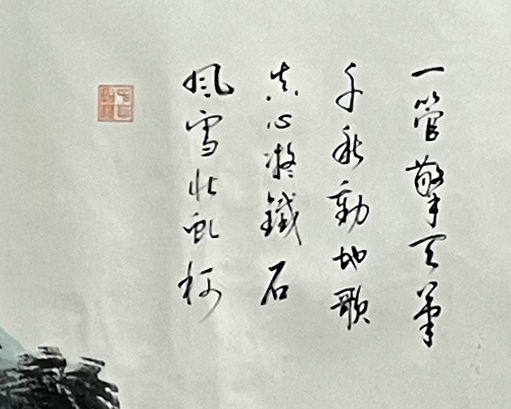 一管擎天筆
千秋動地歌
貞心凝鐵石
風雪壯虬柯